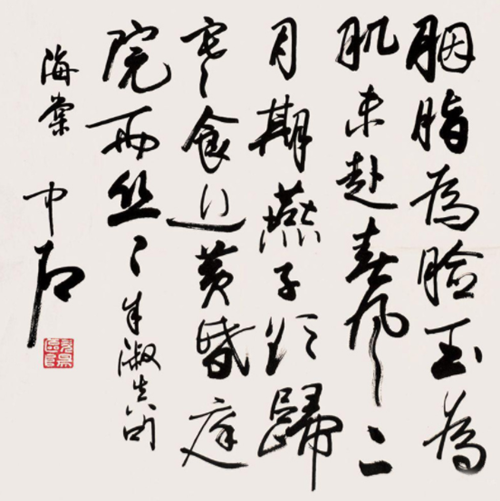 胭脂為臉玉為
肌未赴春風二
月期燕子欲歸
寒食近黃昏庭
院雨絲〻朱淑真
海棠 中石